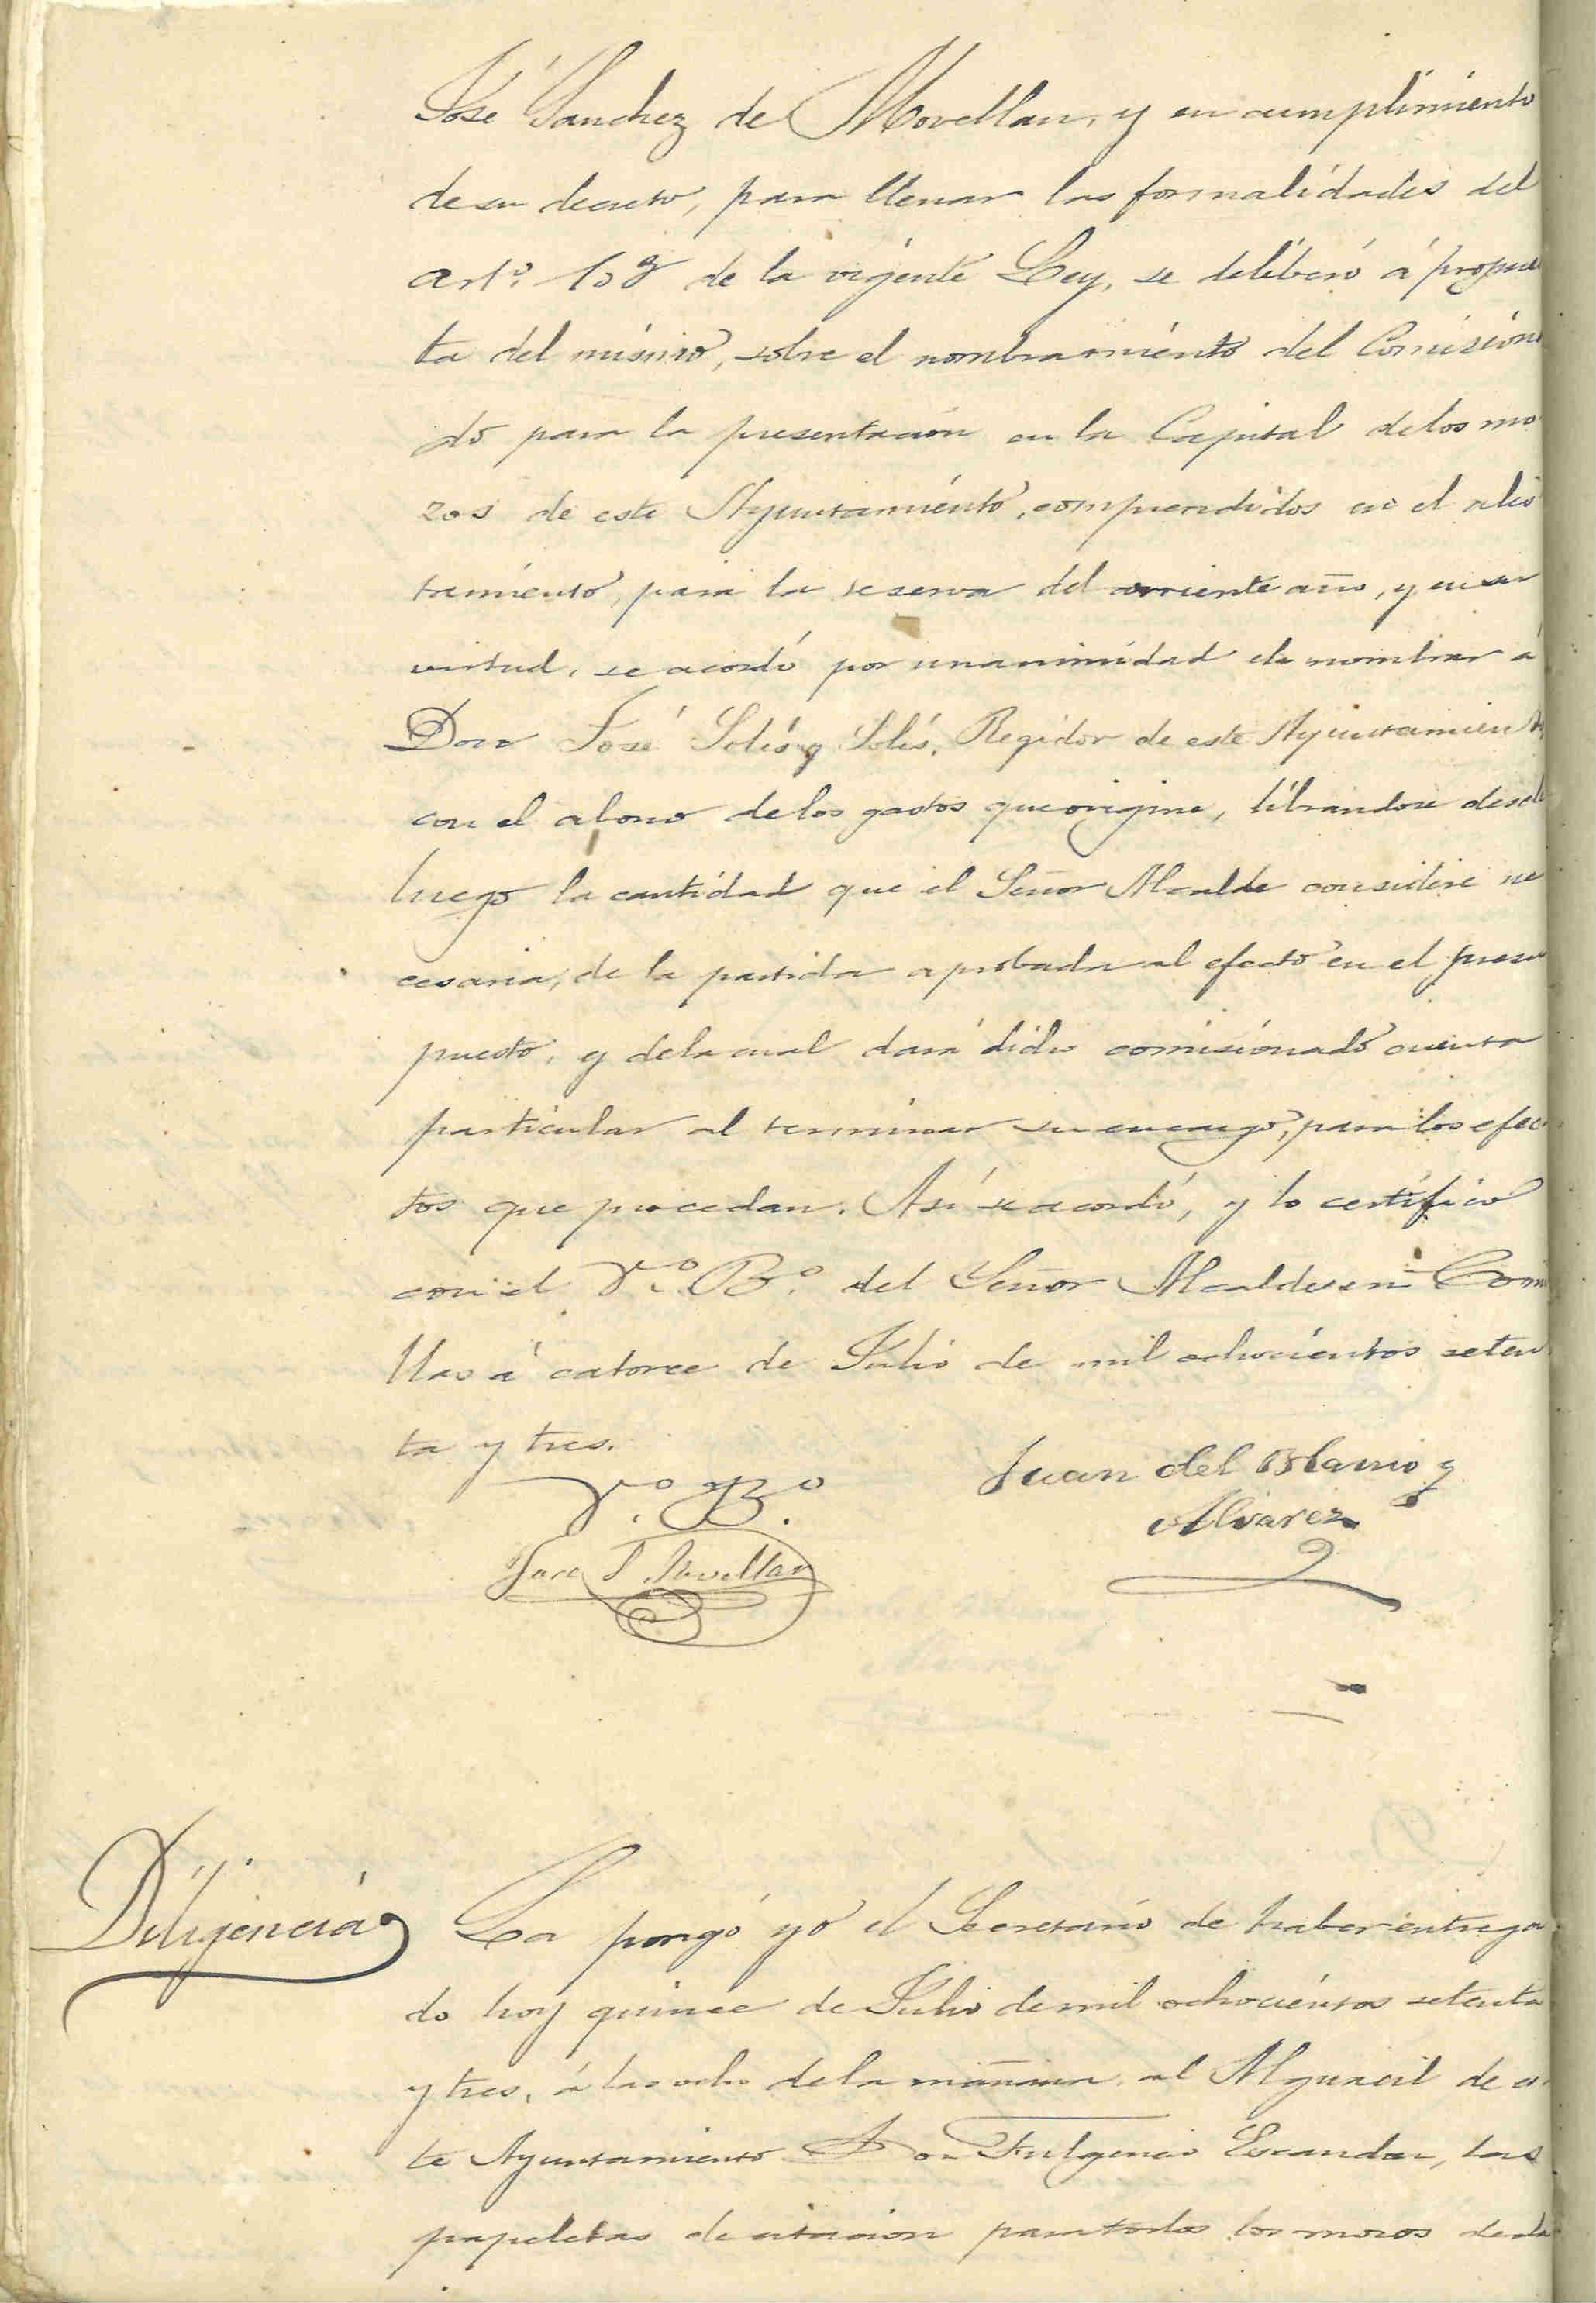 José Sanchez de Movellan, y en cumplimiento
de su decreto, para llenar las formalidades del
artº. 108 de la vigente Ley, se deliberó á propues
ta del mismo, sobre el nombramiento del Comisiona
do para la presentacion en la Capital de los mo
zos de este Ayuntamiento, comprendidos en el alis
tamiento, para la reserva del corriente año, y en su
virtud, se acordó por unanimidad de nombrar á
Don José Solís y Solís, Regidor de este Ayuntamiento,
con el abono de los gastos que origine, librandose desde
luego la cantidad que el Señor Alcalde considere ne
cesaria, de la partida aprobada al efecto en el presu
puesto, y de la cual dará dicho comisionado cuenta
particular al terminar su encargo, para los efec
tos que procedan. Así se acordó, y lo certifico
con el Vº. Bº. del Señor Alcalde en Comi
llas á catorce de Julio de mil ochocientos seten
ta y tres.
Vº. Bº.
José S. Movellan
Juan del Llano y
Alvarez
Diligencia
La pongo yo el Secretario de haber entrega
do hoy quince de Julio de mil ochocientos setenta
y tres, á las ocho de la mañana, al Alguacil de es
te Ayuntamiento Don Fulgencio Escandon, las
papeletas de citacion para todos los mozos de la